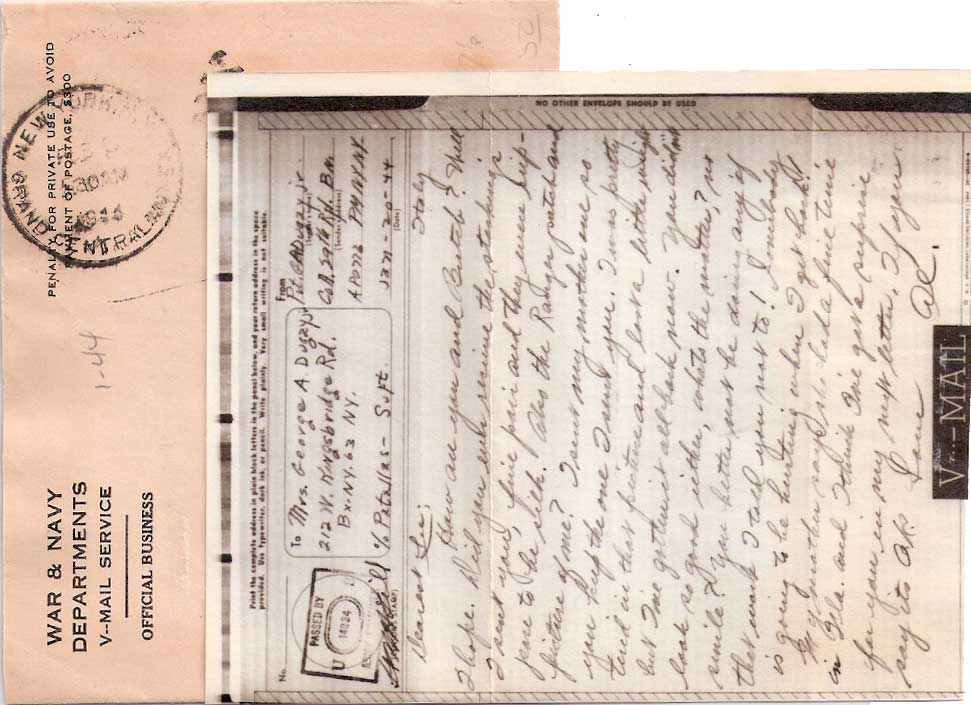 WAR & NAVY
DEPARTMENTS
V--MAIL SERVICE
OFFICIAL BUSINESS
PENALTY FOR PRIVATE USE TO AVOID
PAYMENT OF POSTAGE, $300
NEW YORK, N.Y.
30 AM
1944
1-44
50
NO OTHER ENVELOPE SHOULD BE USED
Print the complete address in plain block letters in the panel below, and your return address in the space
provided. Use typewriter, dark ink, or pencil. Write plainly. Very small writing is not suitable.
No.
PASSED BY
U S
ARMY
(CENSOR'S STAMP)
To Mrs. George A. Dugay jr
212 W. Kingsbridge Rd.
Bx NY. 63 NY.
c/o Patallas - Supt
From
Pvt. G A Dugay jr.
(Sender's name)
Co B. 29th Rpl Bn.
(Sender's address)
APO 772 PM NY NY
Jan - 20 - 44
(Date)
Italy
Dearest Lu;
How are you and Butch? Well
I hope. Did you ever receive the stockings
I sent you, five pair and they were sup-
pose to be silk. Also the Ranger patch and
picture of me? I sent my mother one so
you keep the one I sent you. I was pretty
tired in that picture and lost a little weight
but I've gotten it all back now. You didn't
look so good either, whats the matter, no
smile? You better not be doing any of
that work I told you not to! Somebody
is going to be hurting when I get back!
My mother says she had a fine time
in Fla and I think I've got a surprise
for you in my next letter, if you
say its ok. Love Al.
V···—MAIL